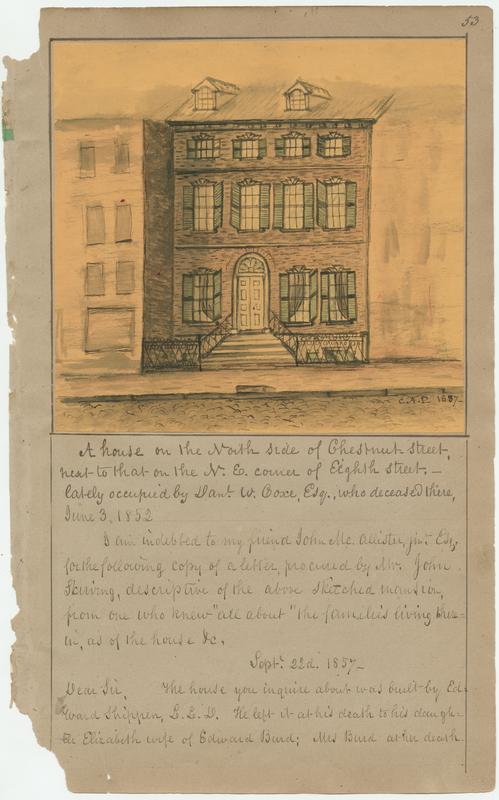 53
C.A.P. 1857.
A house on the North side of Chestnut street,
next to that on the N. E. corner of Eighth street. —
lately occupied by Danl. W. Coxe, Esq., who deceased there,
June 3, 1852
I am indebted to my friend John Mc. Allister, jnr. Esq.
for the following copy of a letter, procured by Mr. John
Skirving, descriptive of the above sketched mansion,
from one who knew "all about" the families living there-
in, as of the house &c.
Septr. 22d. 1857—
Dear Sir, The house you inquire about was built by Ed-
ward Shippen, L.L.D. He left it at his death to his daugh-
ter Elizabeth wife of Edward Burd; Mrs Burd at her death